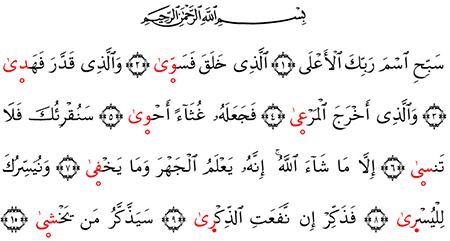 بِسْمِ اللَّهِ الرَّحْمَٰنِ الرَّحِيمِ
سَبِّحِ اسْمَ رَبِّكَ الْأَعْلَى ﴿١﴾ الَّذِي خَلَقَ فَسَوَّىٰ ﴿٢﴾ وَالَّذِي قَدَّرَ فَهَدَىٰ
﴿٣﴾ وَالَّذِي أَخْرَجَ الْمَرْعَىٰ ﴿٤﴾ فَجَعَلَهُۥ غُثَآءً أَحْوَىٰ ﴿٥﴾ سَنُقْرِئُكَ فَلَا
تَنسَىٰ ﴿٦﴾ إِلَّا مَا شَآءَ اللَّهُ ۚ إِنَّهُۥ يَعْلَمُ الْجَهْرَ وَمَا يَخْفَىٰ ﴿٧﴾ وَنُيَسِّرُكَ
لِلْيُسْرَىٰ ﴿٨﴾ فَذَكِّرْ إِن نَّفَعَتِ الذِّكْرَىٰ ﴿٩﴾ سَيَذَّكَّرُ مَن يَخْشَىٰ ﴿١٠﴾